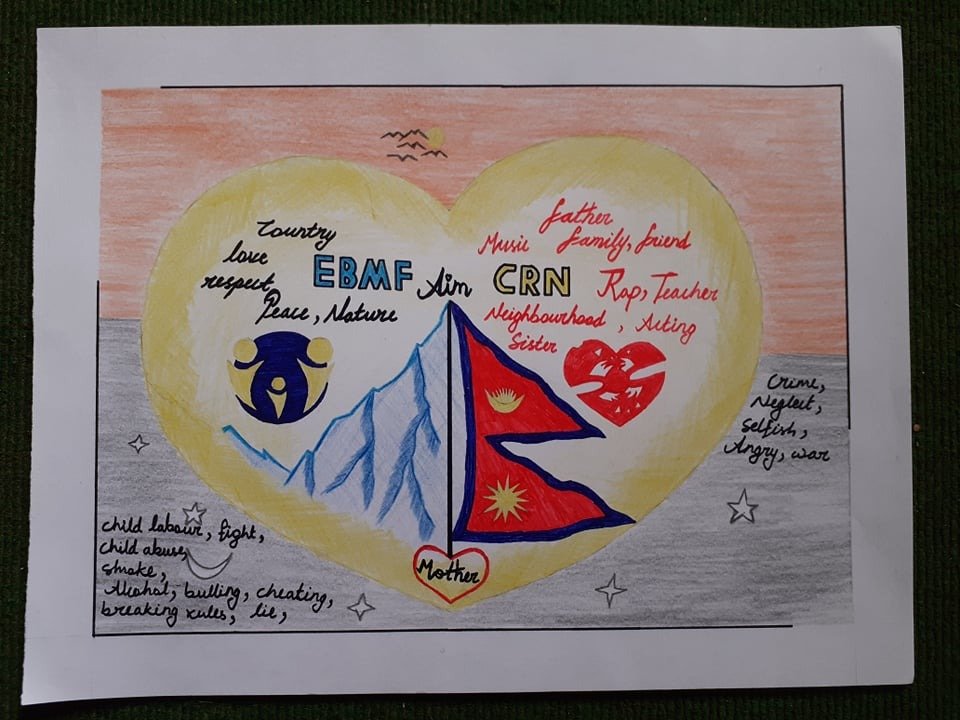 Country
love
respect,
Peace, Nature
EBMF Aim CRN
father
Music family, friend
Rap, Teacher
Neighbourhood, Acting
Sister
Mother
Crime,
Neglect,
Selfish,
Angry, war
child labour, fight,
child abuse,
smoke,
Alcohal, bulling, cheating,
breaking rules, lie,